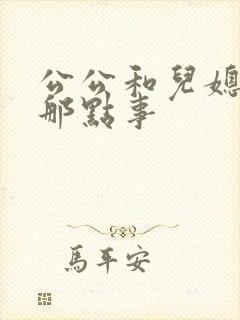 公公和兒媳
那點事
馬平安